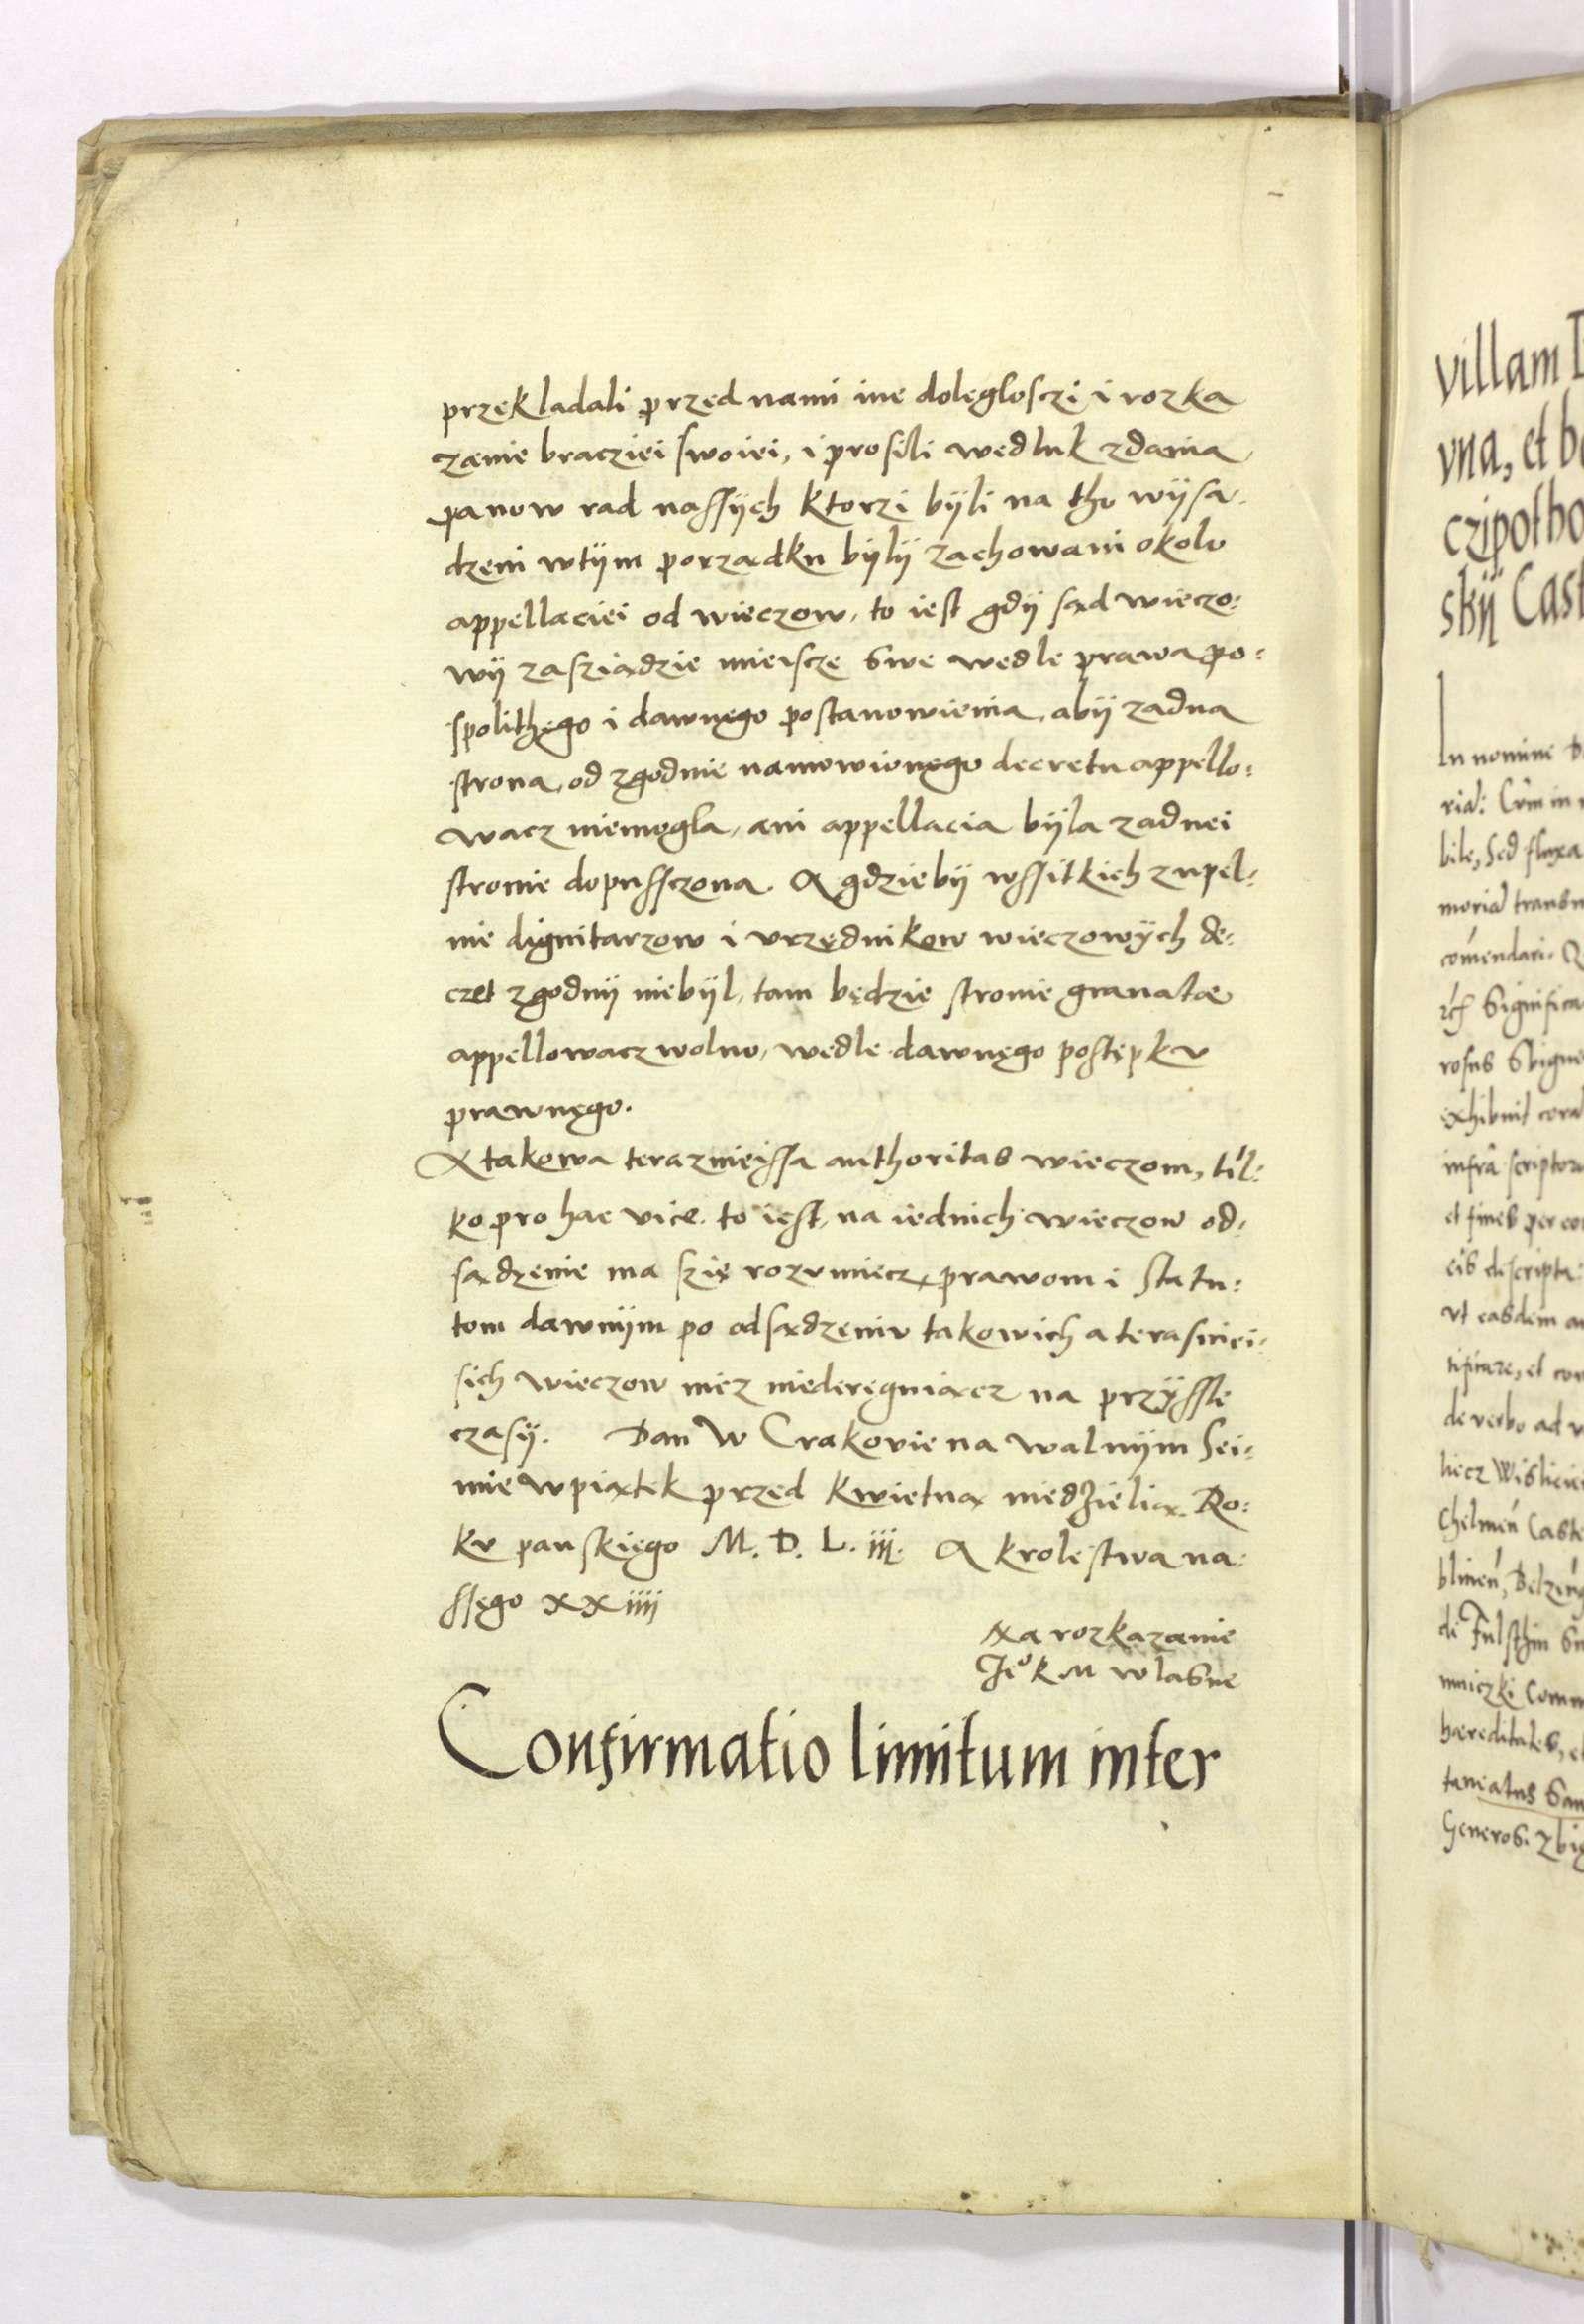 przekladali przed nami ine dolęglosczi i rozka
zanie bracziei swoiei, i prosili wedluk zdania
panow rad nassÿch ktorzi bÿli na tho wÿsa-
dzeni wtÿm porządku bÿlÿ zachowani okolo
appellaciei od wieczow, to iest gdÿ sąd wieczo:
wÿ zasziądzie mieiscze swe wedle prawa po:
spolithęgo i dawnęgo postanowienia, abÿ zadna
strona, od zgodnie namowionęgo decretu appello:
wacz niemogla, ani appellacia bÿla zadnei
stronie dopussczona. A gdziebÿ wssitkich zupel-
nie dignitarzow i vrzędnikow wieczowÿch de:
czet zgodnÿ niebÿl, tam będzie stronie granatæ
appellowacz wolno, wedle dawnęgo postępkv
prawnęgo.
A takowa teraznieissa authoritas wieczom, til:
ko pro hac vice. to iest, na iednich wieczow od:
sądzęnie ma szię rozvmiecz, prawom i statu:
tom dawnÿm po odsądzeniv takowich a terasniei:
sich wieczow niez niederęguiącz na przÿssle
czasÿ. Dan W Crakovie na walnÿm Sei:
mie wpiątek przed kwietną niedzielią. Ro:
kv panskięgo M. D. L. iij. A krolestwa na:
ssęgo xxiiij
Na rozkazanie
Jeº K M wlasne
Confirmatio limitum inter
villam
vna, et b
czipotho
skÿ Cast
In nomine D
ria: Cum in
bile, sed fluxa
moria transm
comendari.
significa
rosus Sbigne
exhibuit cora
infra scriptor
et fines per eo
eis descripta:
vt easdem a
tificare, et con
de verbo ad v
liecz Wislicie
Chelmen Caste
blinen, Belzen
de Fulsthin
mniczki Comm
hæreditates, e
taneatus San
Generos. Zbig